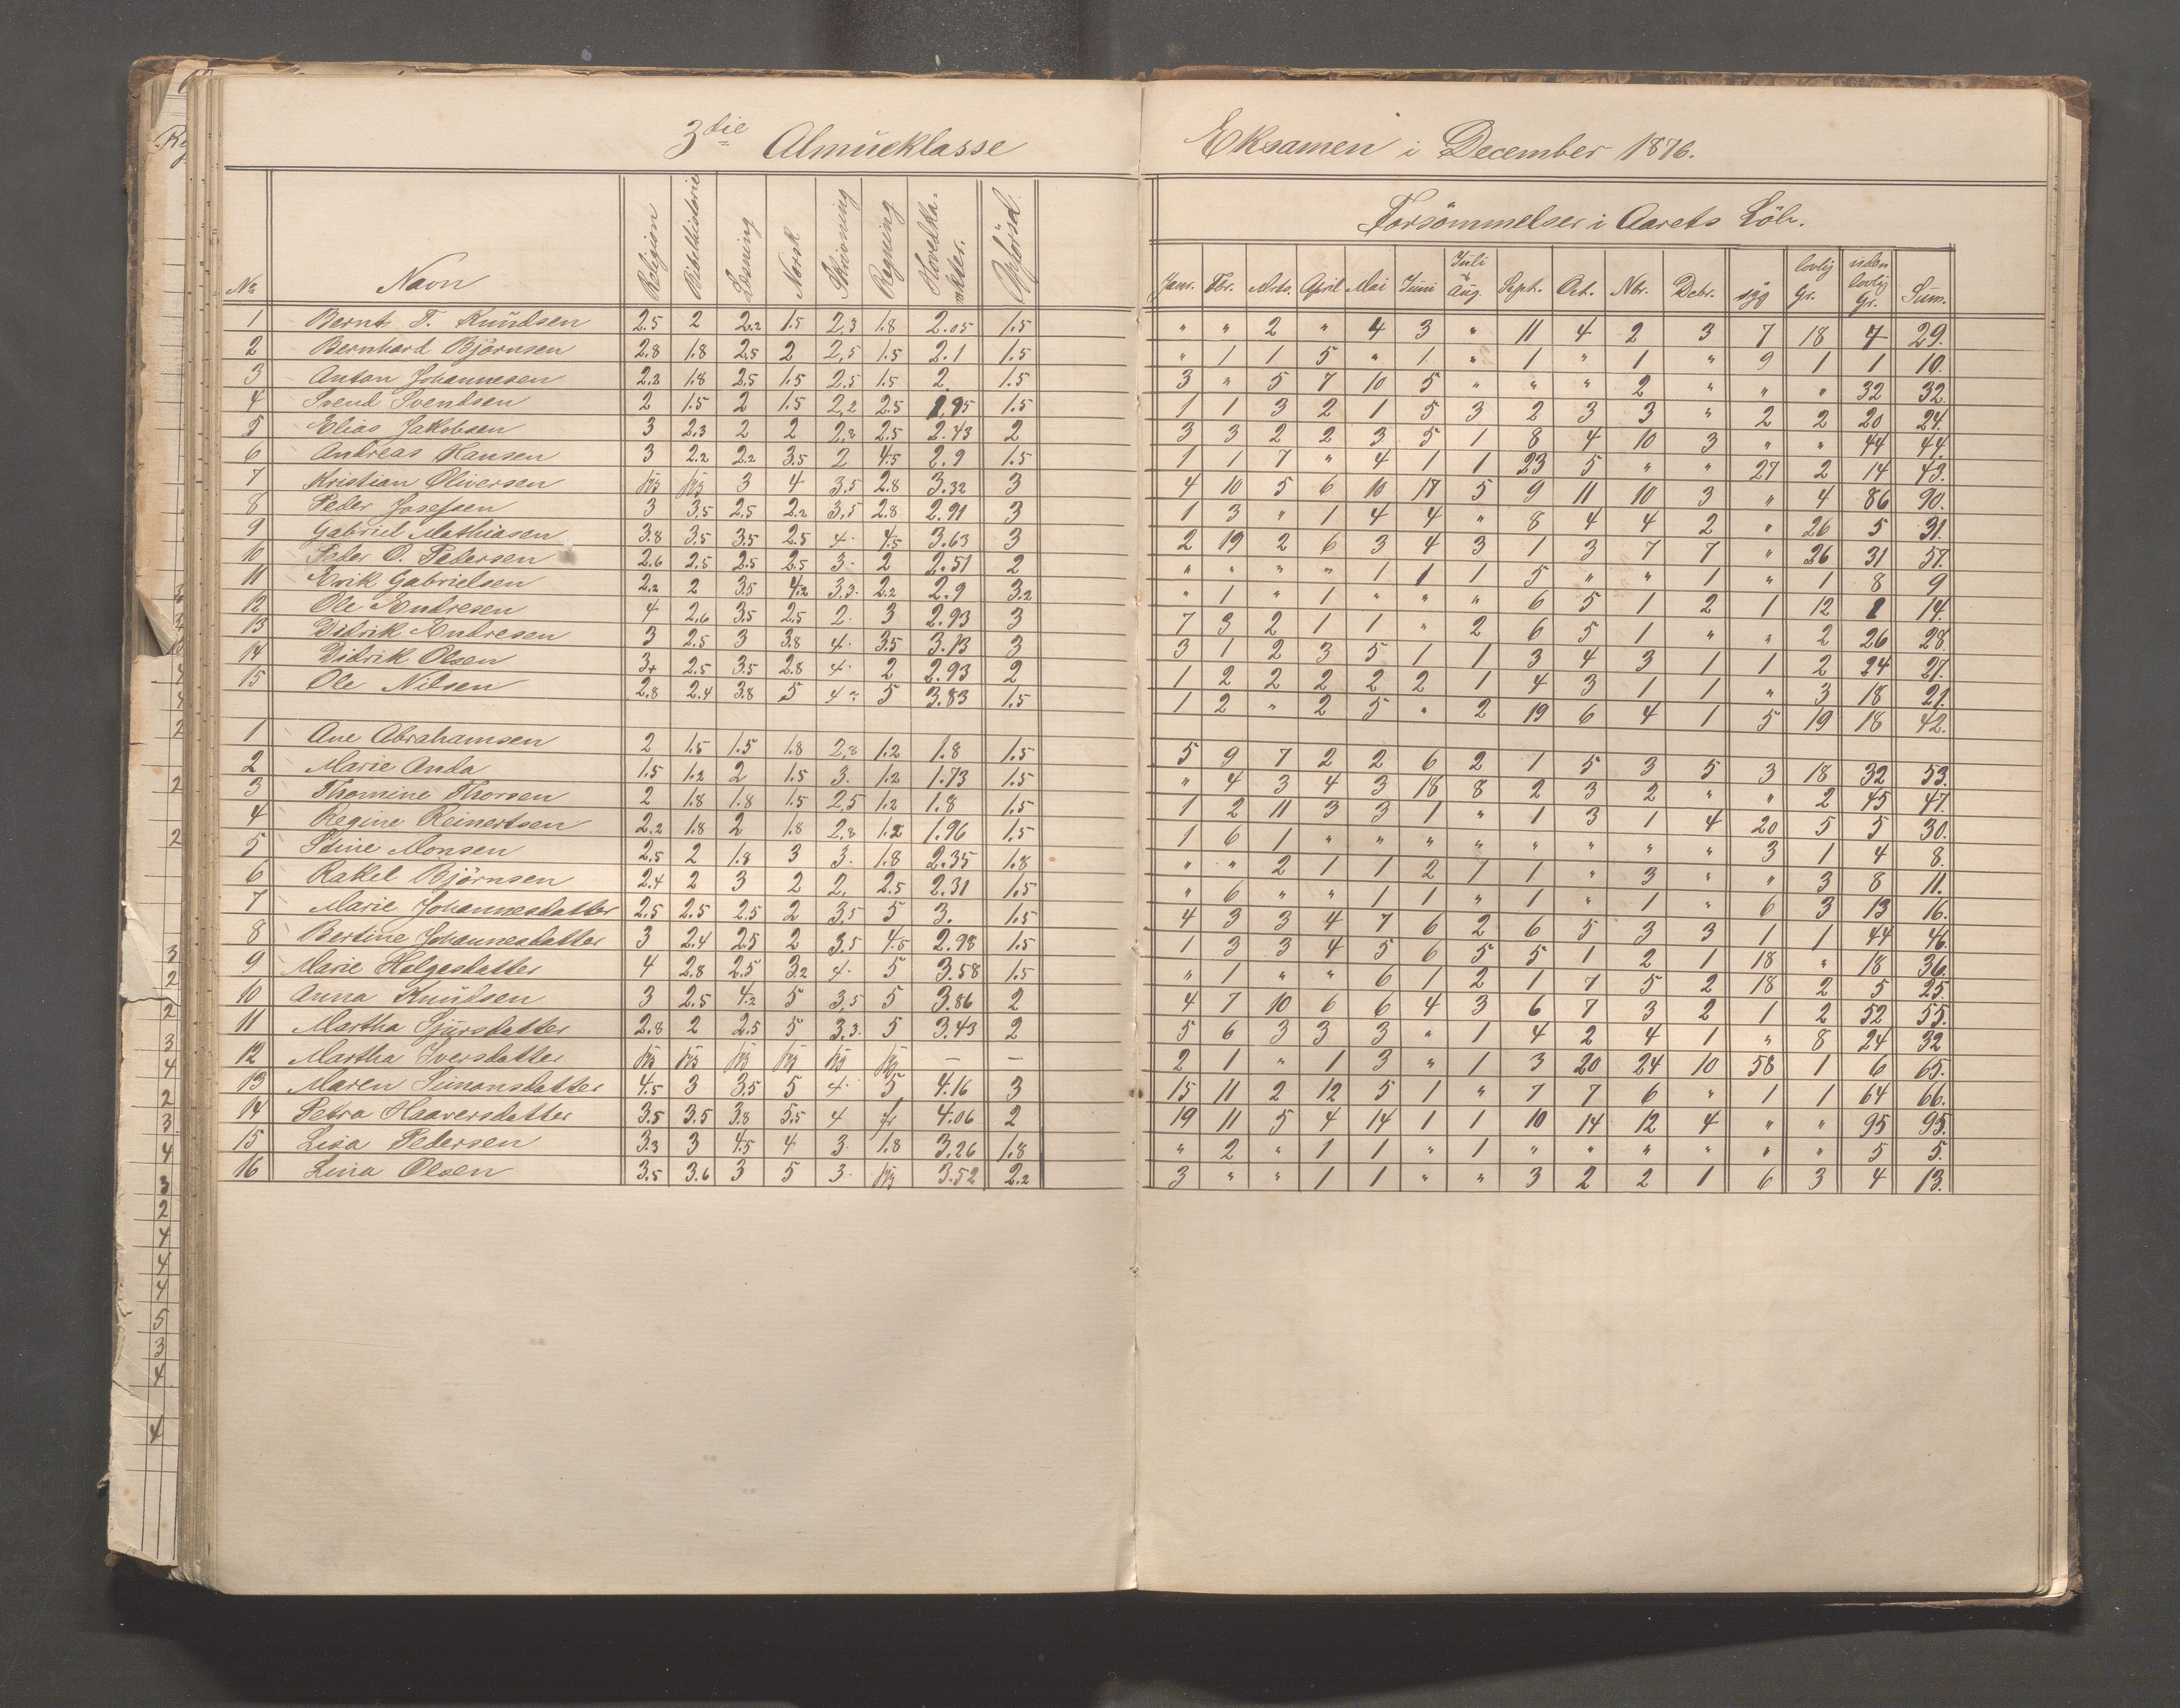 3die Almueklasse
No Navn Religion Bibelhistorie Læsning Norsk Skrivning Regning Hovedka- rakter. Opförsel.
1 Bernt T. Knudsen 2.5 2 2.2 1.5 2,3 1.8 2.05 1.5
2 Bernhard Björnsen 2.8 1.8 2.5 2 2,5 1.5 2.1 1.5
3 Anton Johannesen 2.2 1.8 2.5 1.5 2.5 1.5 2. 1.5
4 Svend Svendsen 2 1.5 2 1.5 2,2 2.5 1,95 1.5
5 Elias Jakobsen 3 2.3 2 2 2,8 2.5 2.43 2
6 Andreas Hansen 3 2.2 2.2 3.5 2 4.5 2.9 1.5
7 Kristian Oliversen 3 4 3,5 2.8 3.32 3
8 Peder Josefsen 3 3.5 2.5 2.2 3,5 2.8 2.91 3
9 Gabriel Mathiasen 3.8 3.5 3.5 2.5 4. 4.5 3.63 3
10 Peder O. Pedersen 2.6 2.5 2.5 2.5 3. 2 2.51 2
11 Erik Gabrielsen 2.2 2 3.5 4.2 3,3. 2.2 2.9 3.2
12 Ole Endresen 4 2,6 3.5 2.5 2. 3 2.93 3
13 Didrik Endresen 3 2.5 3 3.8 4. 3.5 3.13 3
14 Didrik Olsen 3+ 2.5 3.5 2.8 4. 2 2.93 2
15 Ole Nilsen 2.8 2.4 3.8 5 4 5 3.83 1.5
1 Ane Abrahamsen 2 1.5 1.5 1.8 2,8 1.2 1.8 1.5
2 Marie Anda 1.5 1.2 2 1.5 3. 1.2 1.73 1.5
3 Thomine Thorsen 2 1.8 1.8 1.5 2,5 1.2 1.8 1.5
4 Regine Reinertsen 2.2 1.8 2 1.8 2,8 1.2 1.96 1.5
5 Stine Monsen 2.5 2 1.8 3 3. 1.8 2.35 1.8
6 Rakel Björnsen 2.4 2 3 2 2, 2.5 2.31 1.5
7 Marie Johannesdatter 2.5 2.5 2.5 2 3,5 5 3. 1.5
8 Bertine Johannesdatter 3 2.4 2.5 2 3,5 4.5 2.98 1.5
9 Marie Helgesdatter 4 2.8 2.5 3.2 4. 5 3.58 1.5
10 Anna Knudsen 3 2.5 4.2 5 3,5 5 3.86 2
11 Martha Sjursdatter 2.8 2 2.5 5 3,3. 5 3.43 2
12 Martha Iversdatter — —
13 Maren Simonsdatter 4.5 3 3.5 5 4. 5 4.16 3
14 Petra Haaversdatter 3.5 3.5 3.8 5.5 4 4.06 2
15 Lisa Pedersen 3.3 3 4.5 4 3. 1.8 3,26 1.8
16 Lina Olsen 3.5 3.6 3 5 3. 3.52 2.2
Eksamen i December 1876.
Forsömmelser i Aarets Löb.
Janr. Fbr. Mrts. April Mai Juni Juli & Aug. Sept. Oct. Nbr. Debr. syg lovlig Gr. uden lovlig Gr. Sum.
" " 2 " 4 3 " 11 4 2 3 7 18 4 29.
" 1 1 5 " 1 " 1 " 1 " 9 1 1 10.
3 " 5 7 10 5 " " " 2 " " " 32 32.
1 1 3 2 1 5 3 2 3 3 " 2 2 20 24.
3 3 2 2 3 5 1 8 4 10 3 " " 44 44.
1 1 7 " 4 1 1 23 5 " " 27 2 14 43.
4 10 5 6 10 17 5 9 11 10 3 " 4 86 90.
1 3 " 1 4 4 " 8 4 4 2 " 26 5 31.
2 19 2 6 3 4 3 1 3 7 7 " 26 31 57.
" " " " 1 1 1 5 " " 1 " 1 8 9
" 1 " 1 " " " 6 5 1 2 1 12 1 14.
7 3 2 1 1 " 2 6 5 1 " " 2 26 28.
3 1 2 3 5 1 1 3 4 3 1 1 2 24 27.
1 2 2 2 2 2 1 4 3 1 1 " 3 18 21.
1 2 " 2 5 " 2 19 6 4 1 5 19 18 42.
5 9 7 2 2 6 2 1 5 3 5 3 18 32 53.
" 4 3 4 3 18 8 2 3 2 " " 2 45 47.
1 2 11 3 3 1 " 1 3 1 4 20 5 5 30.
1 6 1 " " " " " " " " 3 1 4 8.
" " 2 1 1 2 1 1 " 3 " " 3 8 11.
" 6 " " 1 1 " 1 " 1 " 6 3 13 16.
4 3 3 4 7 6 2 6 5 3 3 1 1 44 46.
1 3 3 4 5 6 5 5 1 2 1 18 " 18 36.
" 1 " " 6 1 2 1 7 5 2 18 2 5 25.
4 7 10 6 6 4 3 6 7 3 2 1 2 52 55.
5 6 3 3 3 " 1 4 2 4 1 " 8 24 32
2 1 " 1 3 " 1 3 20 24 10 58 1 6 65.
15 11 2 12 5 1 " 7 7 6 " 1 1 64 66.
19 11 5 4 14 1 1 10 14 12 4 " " 95 95.
" 2 " 1 1 " 1 " " " " " " 5 5.
3 " " 1 1 " " 3 2 2 1 6 3 4 13.